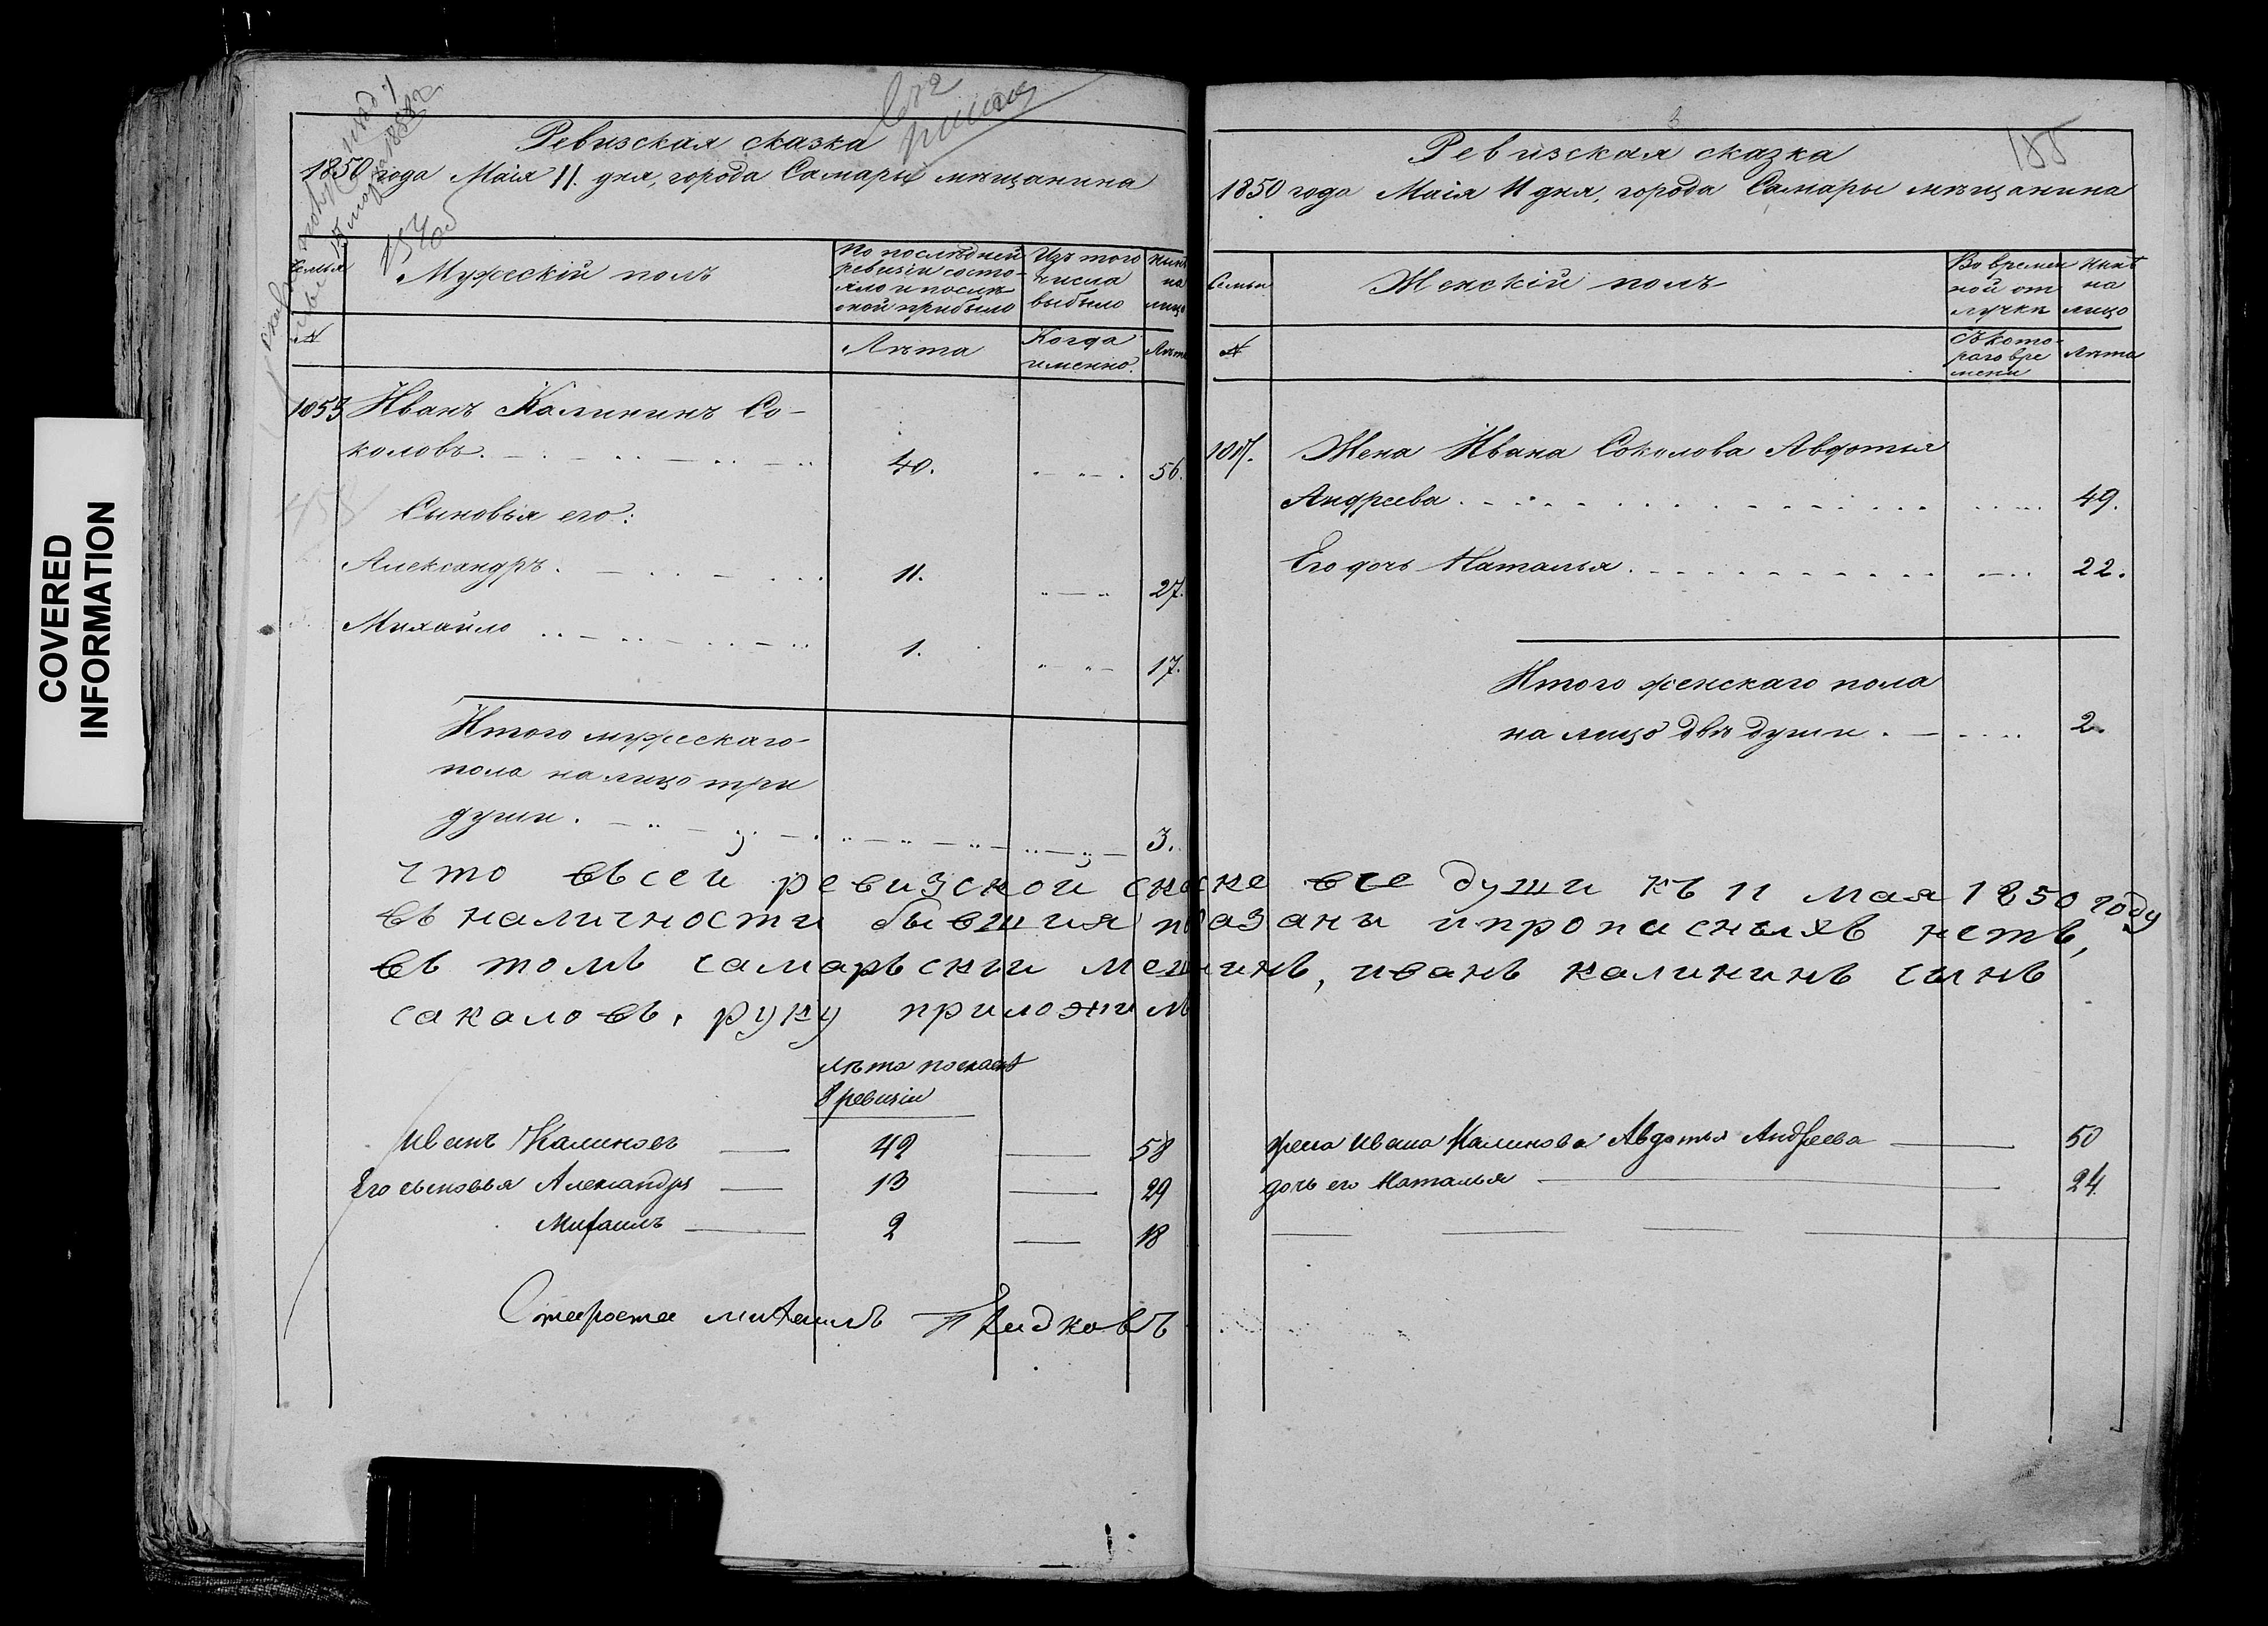 COVERED
INFORMATION
Ревизская сказка
1850 года Маія 11. дня, города Самары мѣщанина
Семьи
Мужескій полъ
По послѣдней
ревизіи состо-
яло и послѣ
оной прибыло
Изъ того
числа
выбыло
Нынѣ
на
лицо
№
Лѣта
Когда
именно.
Лѣта
1053 Иванъ Калининъ Со-
коловъ. 40. 56.
Сыновья его:
Александръ. 11. 27.
Михайло 1. 17.
Итого мужескаго
пола на лицо три
души. 3.
Ревизская сказка
185
1850 года Маія 11 дня, города Самары мѣщанина
Семьи
Женскій полъ
Во времен
ной от
лучкѣ
Нынѣ
на
лицо
№
Съ кото-
раго вре
мени
Лѣта
Жена Ивана Соколова Авдотья
Андреева. 49.
Его дочь Наталья. 22.
Итого женскаго пола
на лицо двѣ души. 2.
что въсей ревизской скаске все души къ 11 мая 1850 году
въ наличности бывшия показаны ипрописныхъ нетъ,
въ томъ самаръскии мещининъ, иванъ калининъ сынъ
сакаловъ. руку приложилъ
лѣта по сказкѣ
8 ревизіи
Иванъ Калиновъ 42 58
Его сыновья Александръ 13 29
Михаилъ 2 18
жена Ивана Калинова Авдотья Андреева 50
дочь его Наталья 24
Староста Михаилъ